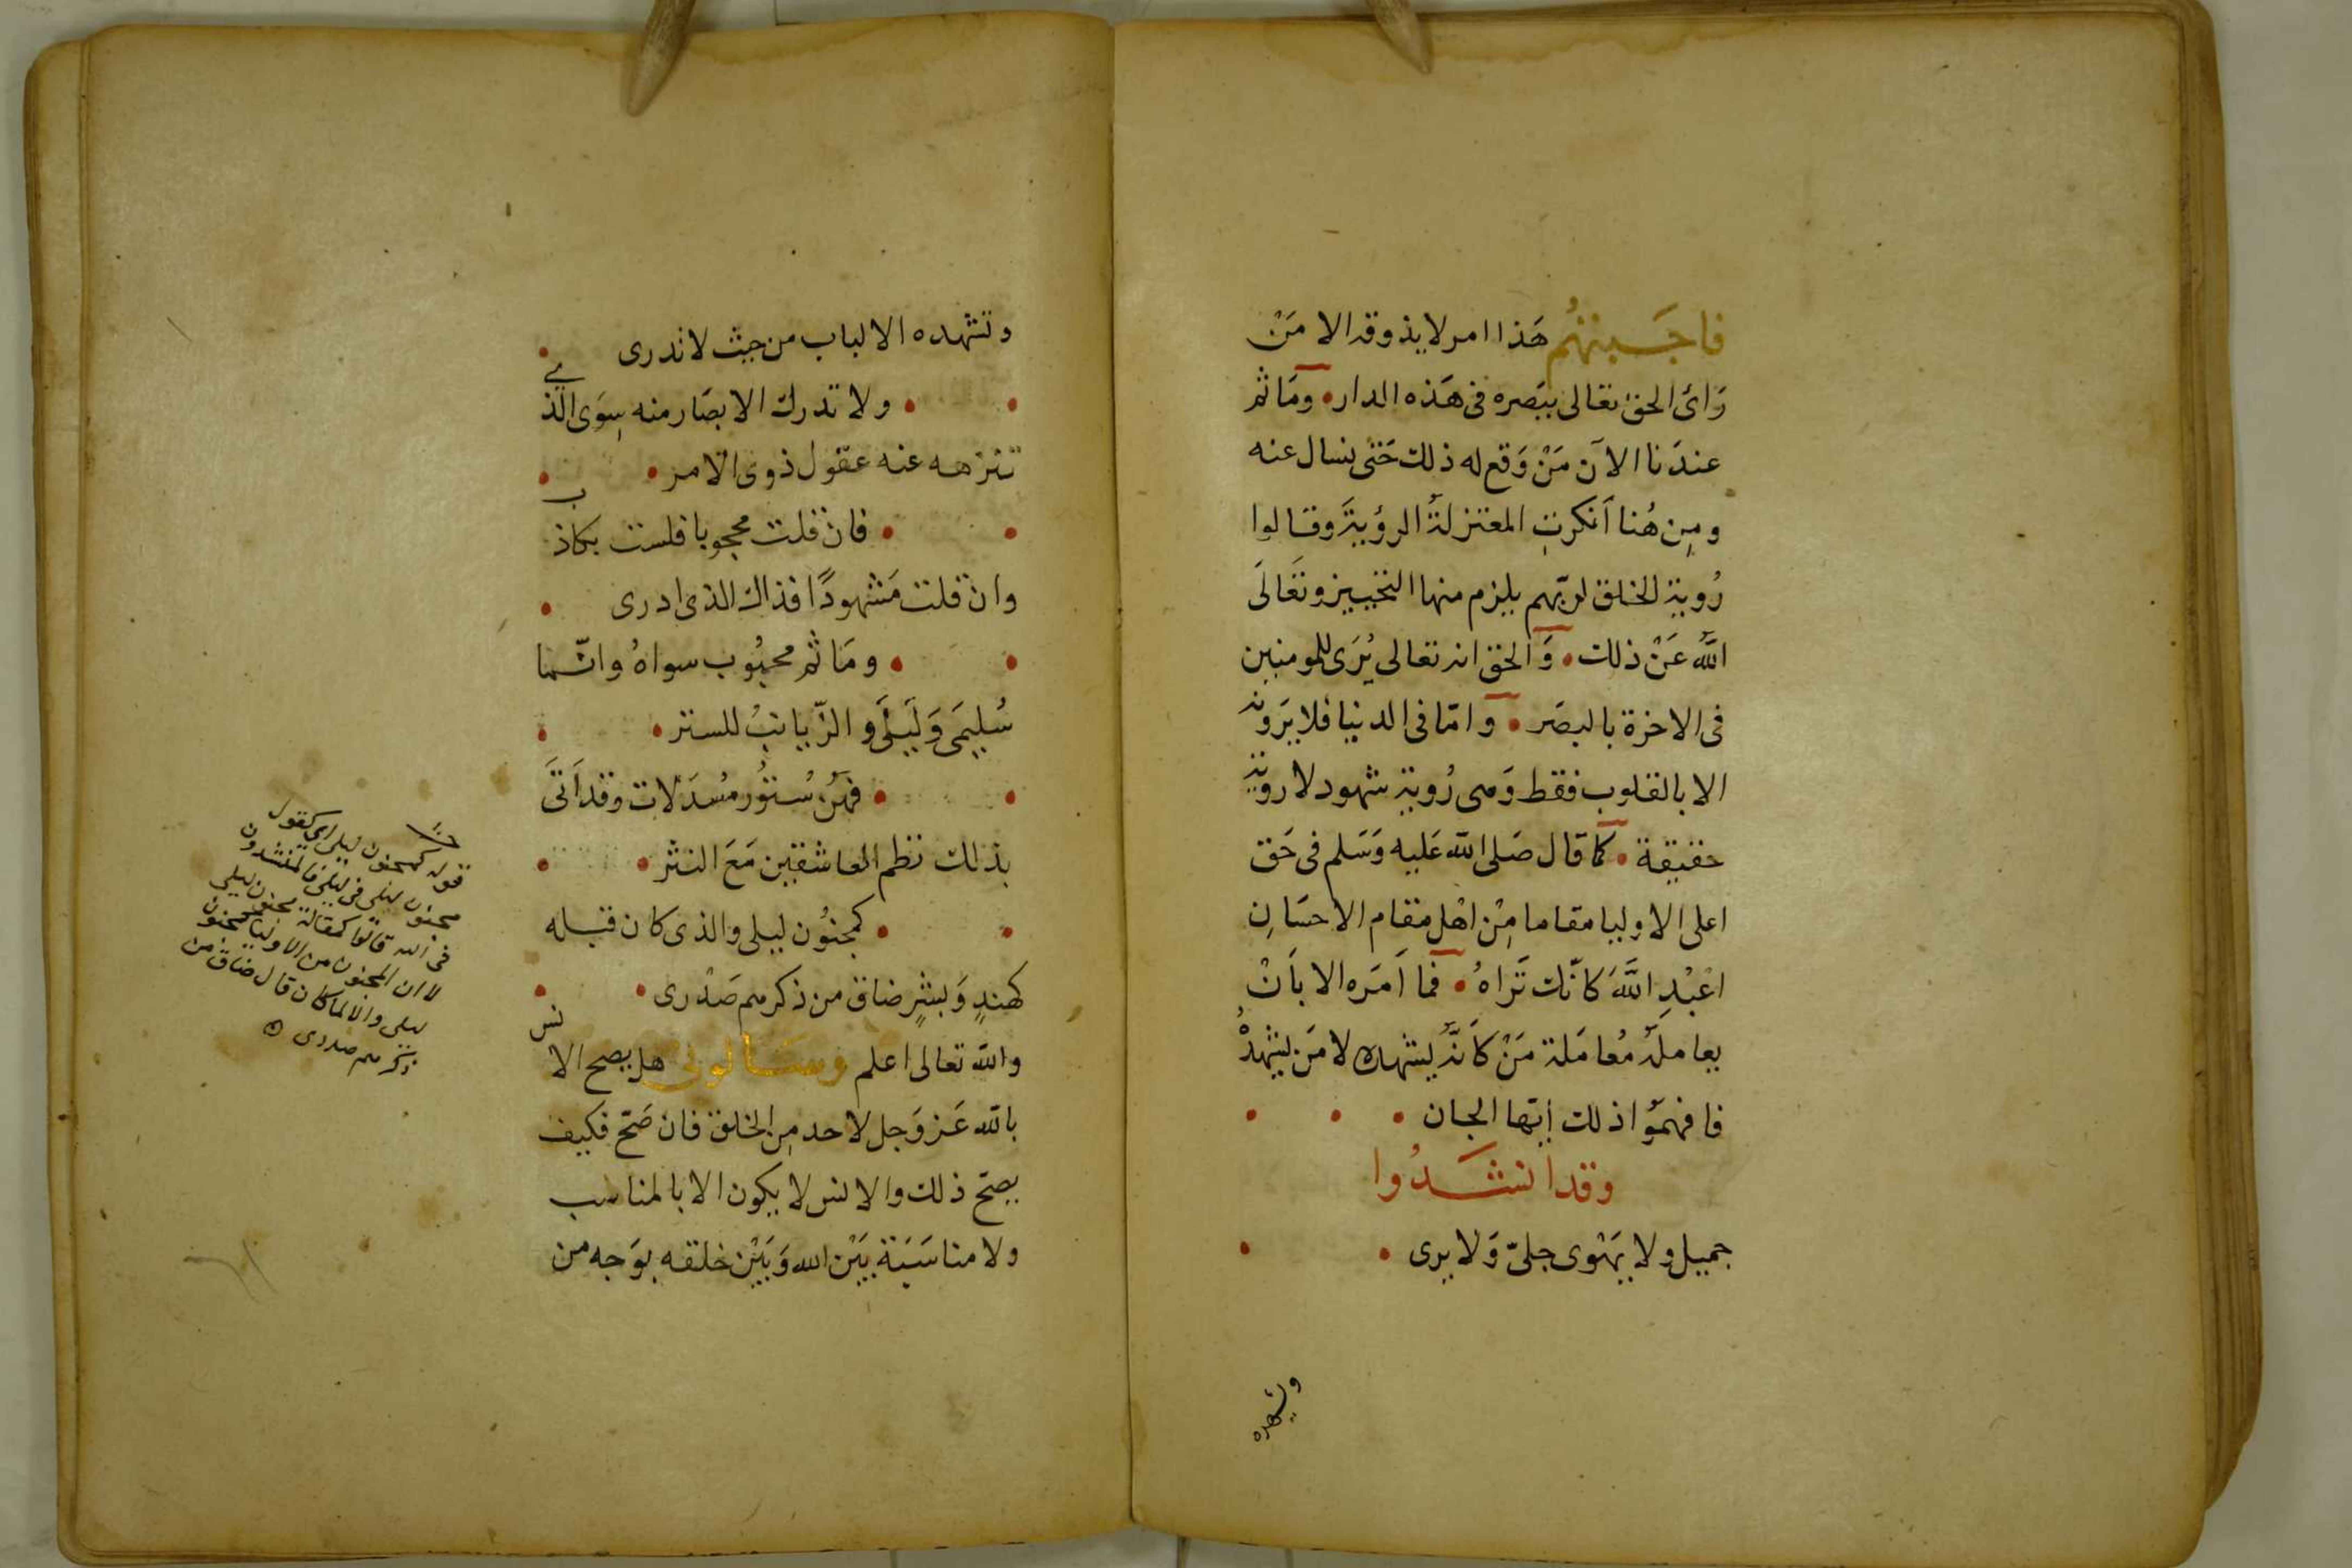 فاجبتهُم هَذا امر لا يذوقه الا مَنْ
رَائ الحق تعالى ببَصره فى هَذه الدار • ومَا ثم
عندَنا الآن مَنْ وَقع له ذلك حَتى نسال عنه
ومِن هُنا اَنكرتِ المعتزلةُ الرؤيةَ وقالوا
رُوية الخلق لربّهم يلزم منها التحييز وتَعَالَى
اللهُ عَنْ ذلك • وَالحق انه تعالى يُرَى للمومنين
فى الاخرة بالبصَر • وامّا فى الدنيا فلا يرَونه
الا بالقلوب فقط وَهى رُوية شهود لا روية
حقيقة • كما قال صَلى الله عَليه وَسَلم فى حَق
اعلى الاوليا مقاما مِنْ اهْل مقام الاحسَانِ
اعْبُدِ اللَّهَ كانّك تَراهُ • فما اَمَره الا بأَنْ
يعاملَهُ مُعامَلة مَنْ كَاَنّهُ يشهده لا مَن يشهدُهُ
فافهمُوا ذلك أيّها الجان • • •
وقد انشَدُوا
جميل ولا يَهْوى جلىّ وَلا يرى • •
وتشهده
وتشهده الالباب من حيث لا ندرى •
• • ولا تدرك الابصَار منه سِوَى الذي
تنزهه عنه عقول ذوى الامر • •
• • فان قلت محجوبا فلست بكاذب
وان قلت مَشهودًا فذاك الذى ادرى •
• • ومَا ثم محبُوب سواهُ وانّما
سُليمَى وَلَيلَى والزّيانبُ للستر • •
• • فهُن سُتُور مُسدَلات وقد اَتَى
بذلك نظم العاشقين مَعَ النثر • •
• • كمجنُون ليلى والذى كان قبله
كهندٍ وَبشرٍ ضاق من ذكرهم صَدْرى • •
والله تعالى اعلم وسَالونى هل يصح الانس
بالله عَز وَجل لاحد مِن الخلق فان صَحّ فكيف
يصحّ ذلك والانس لا يكون الا بالمناسب
ولا مناسَبَة بَيْن الله وَبَيْن خلقه بوَجه من
قوله كمجنون ليلى اى كقول
مجنون ليلى فى ليلى فالمنشدون
فى الله قالوا كمقالة مجنون ليلى
لا ان المجنون من الاوليا كمجنون
ليلى والا لما كان قال ضاق من
ذكرهم صدرى